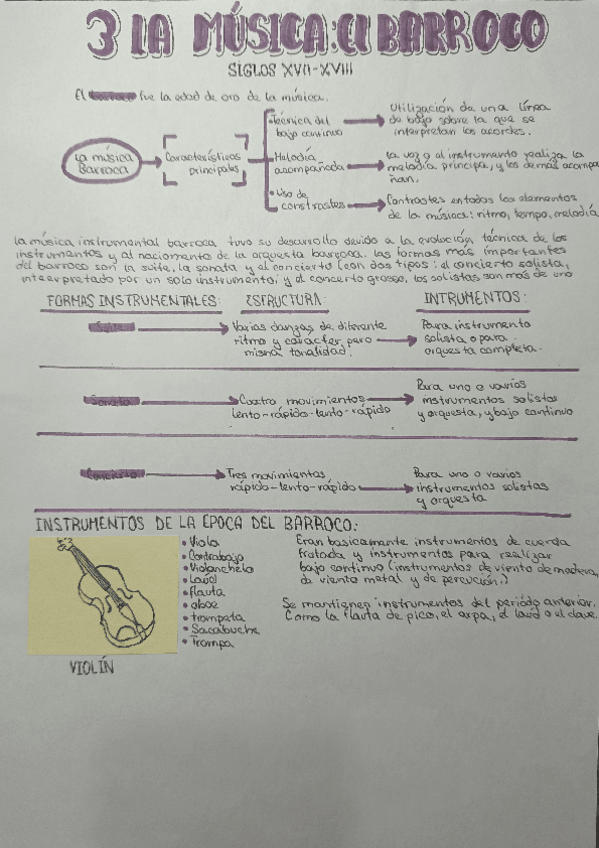 3 LA MÚSICA: El BARROCO
SIGLOS XVII-XVIII
El barroco fue la edad de oro de la música.
La música
Barroca
Características
principales
Técnica del
bajo continuo
Utilización de una línea
de bajo sobre la que se
interpretan los acordes.
Melodía
acompañada
la voz o al instrumento realiza la
melodía principa, y los demás acompa
ñan.
Uso de
constrastes
Contrastes en todos los elementos
de la músicas: ritmo, tempo, melodía
la música instrumental barroca tuvo su desarrollo devido a la evolución técnica de los
instrumentos y al naciomento de la orquesta barroca. las formas más importantes
del barroco son la suite, la sonata y el concierto (con dos tipos: el concierto solista,
interpretado por un solo instrumento, y el concerto grosso, los solistas son más de uno
FORMAS INSTRUMENTALES:
ESTRUCTURA:
INTRUMENTOS:
Suite
Varias danzas de diferente
ritmo y caracter, pero
misma tonalidad.
Para instrumento
solista o para
orquesta completa.
Sonata
Cuatro movimientos
lento-rápido-lento-rápido
Para uno o varios
instrumentos solistas
y orquesta, y bajo continuo
Concierto
Tres movimientos
rápido-lento-rápido
Para uno o varios
instrumentos solistas
y orquesta
INSTRUMENTOS DE LA EPOCA DEL BARROCO:
Viola
Contrabajo
Violonchelo
Laúd
flauta
oboe
trompeta
Sacabuche
Trompa
VIOLÍN
Eran basicamente instrumentos de cuerda
frotada y instrumentos para realizar
bajo continuo (instrumentos de viento de madera,
de viento metal y de percución.)
Se mantienen instrumentos del periódo anterior.
Como la flauta de pico, el arpa, el laúd o el clave.